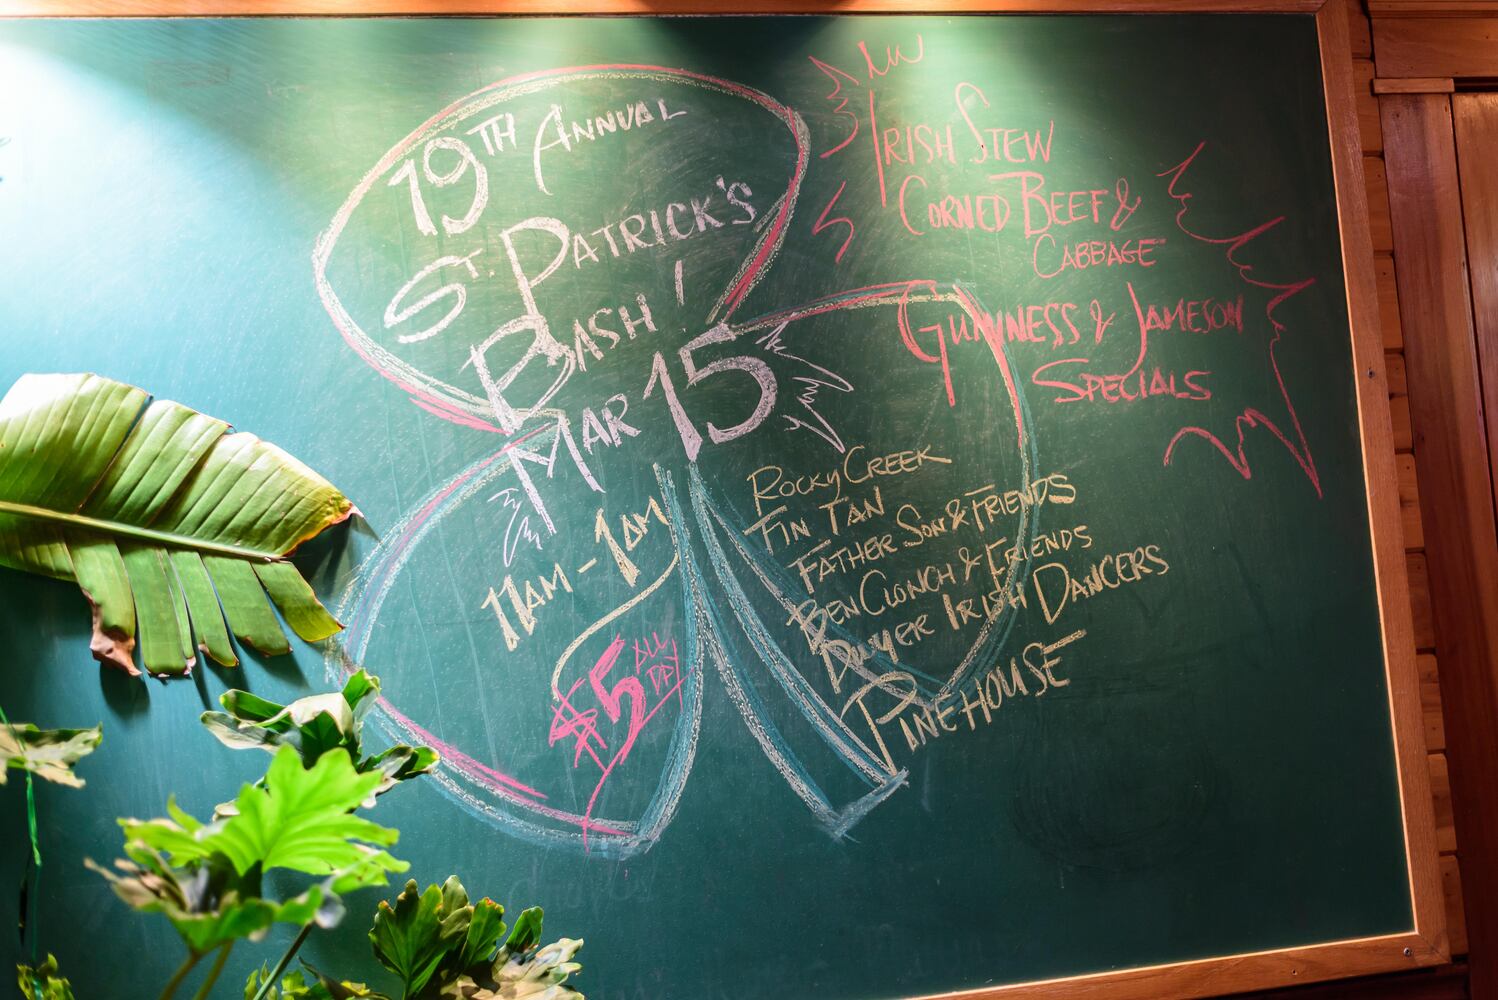 19TH ANNUAL
ST. PATRICK'S
BASH!
MAR 15
11AM - 1AM
$5 ALL
DAY
IRISH STEW
CORNED BEEF &
CABBAGE
GUINNESS & JAMESON
SPECIALS
ROCKY CREEK
TIN TAN
FATHER SON & FRIENDS
BEN CLONCH & FRIENDS
DWYER IRISH DANCERS
PINEHOUSE